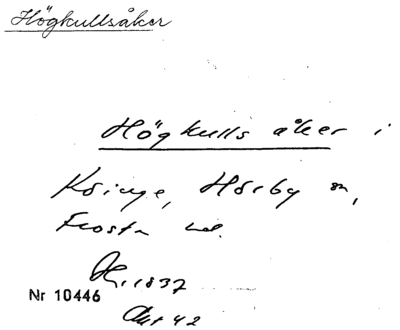 Högkullsåker
Högkulls åker i
Hörby sn,
Frosta hd.
1837
Nr 10446
Akt 42